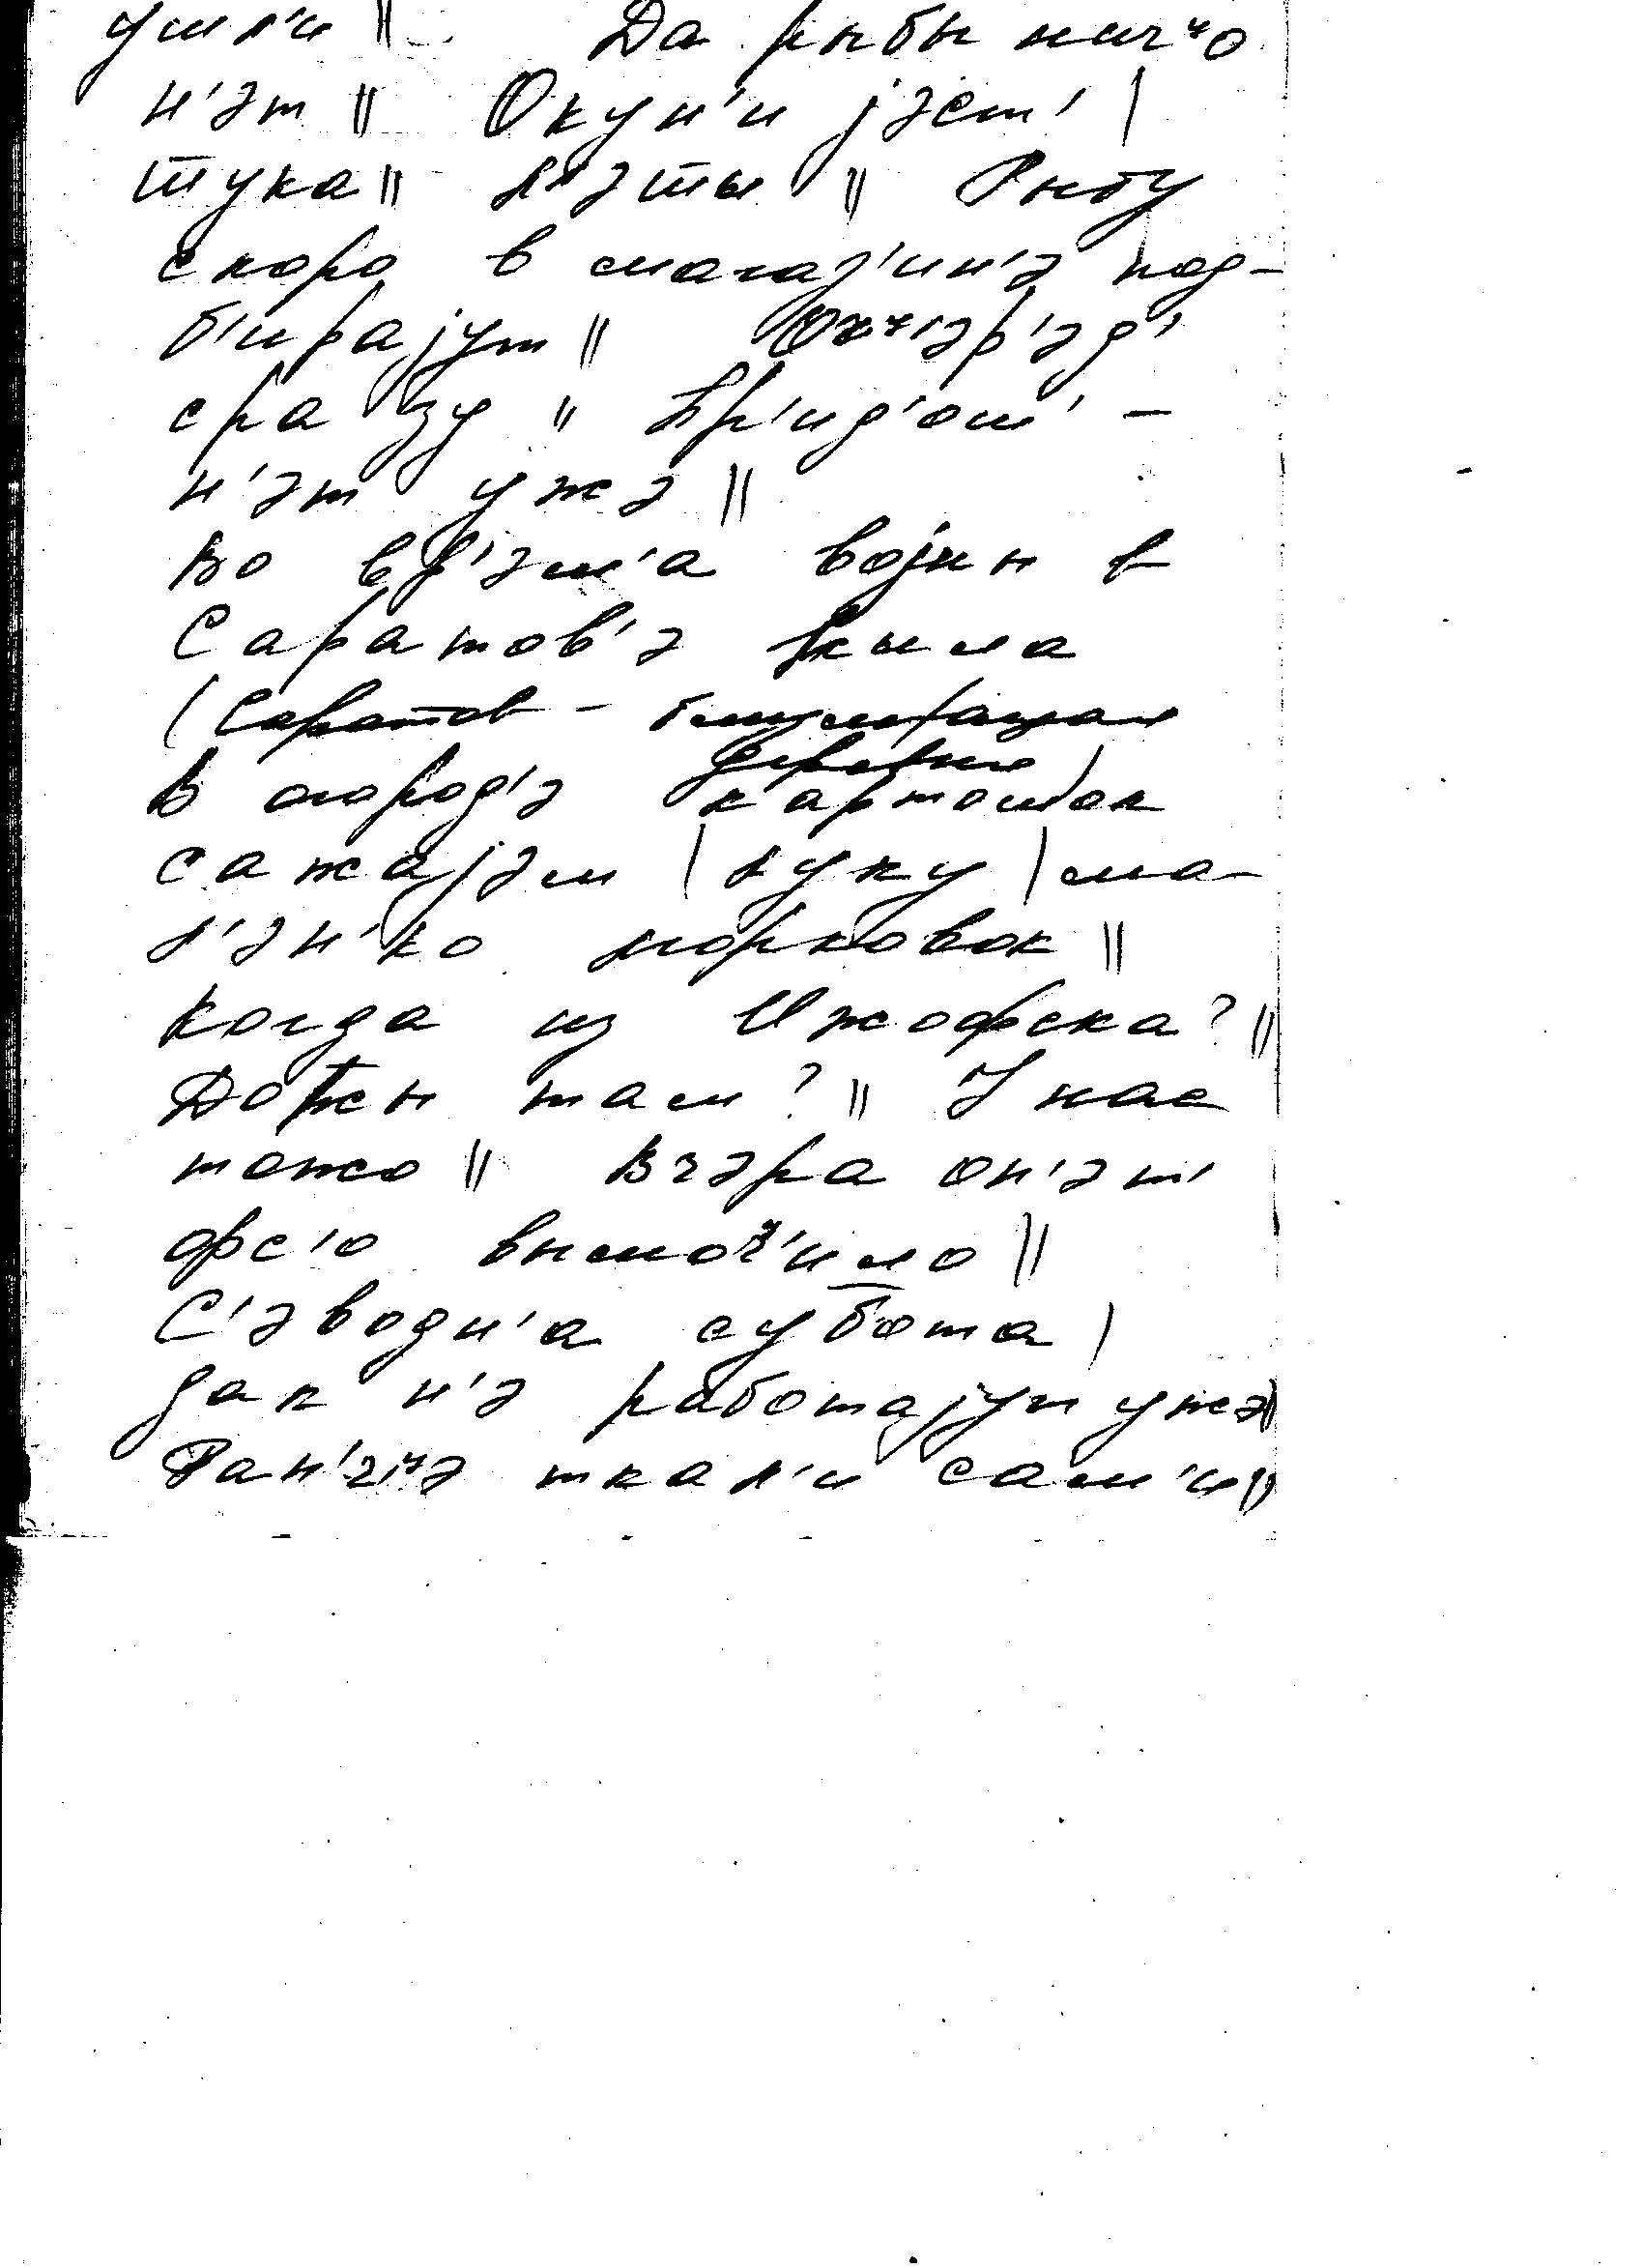 ушл'и || Да рыбы нич'ч'о
н'эт || Окун'и jэст' |
шука || л'эшы || Рыбу
скоро в магаз'ин'э под-
б'ирајут || Оч'ч'эр'эд'
сразу || Пр'ид'ош' –
н'эт ужэ ||
Во вр'эм'а војны в
Саратов'э жыла
(Саратов – ближайшая
деревня)
В огород'э картошок
сажајэм | луку | ма-
л'эн'ко морковок ||
Когда из Ижофска? ||
Дожжы там? || У нас
тожо || Вчэра оп'эт'
фс'о вымоч'ило ||
С'эводн'а субота |
дак н'э работајут ужэ ||
Ран'ч'э ткал'и сам'и ||